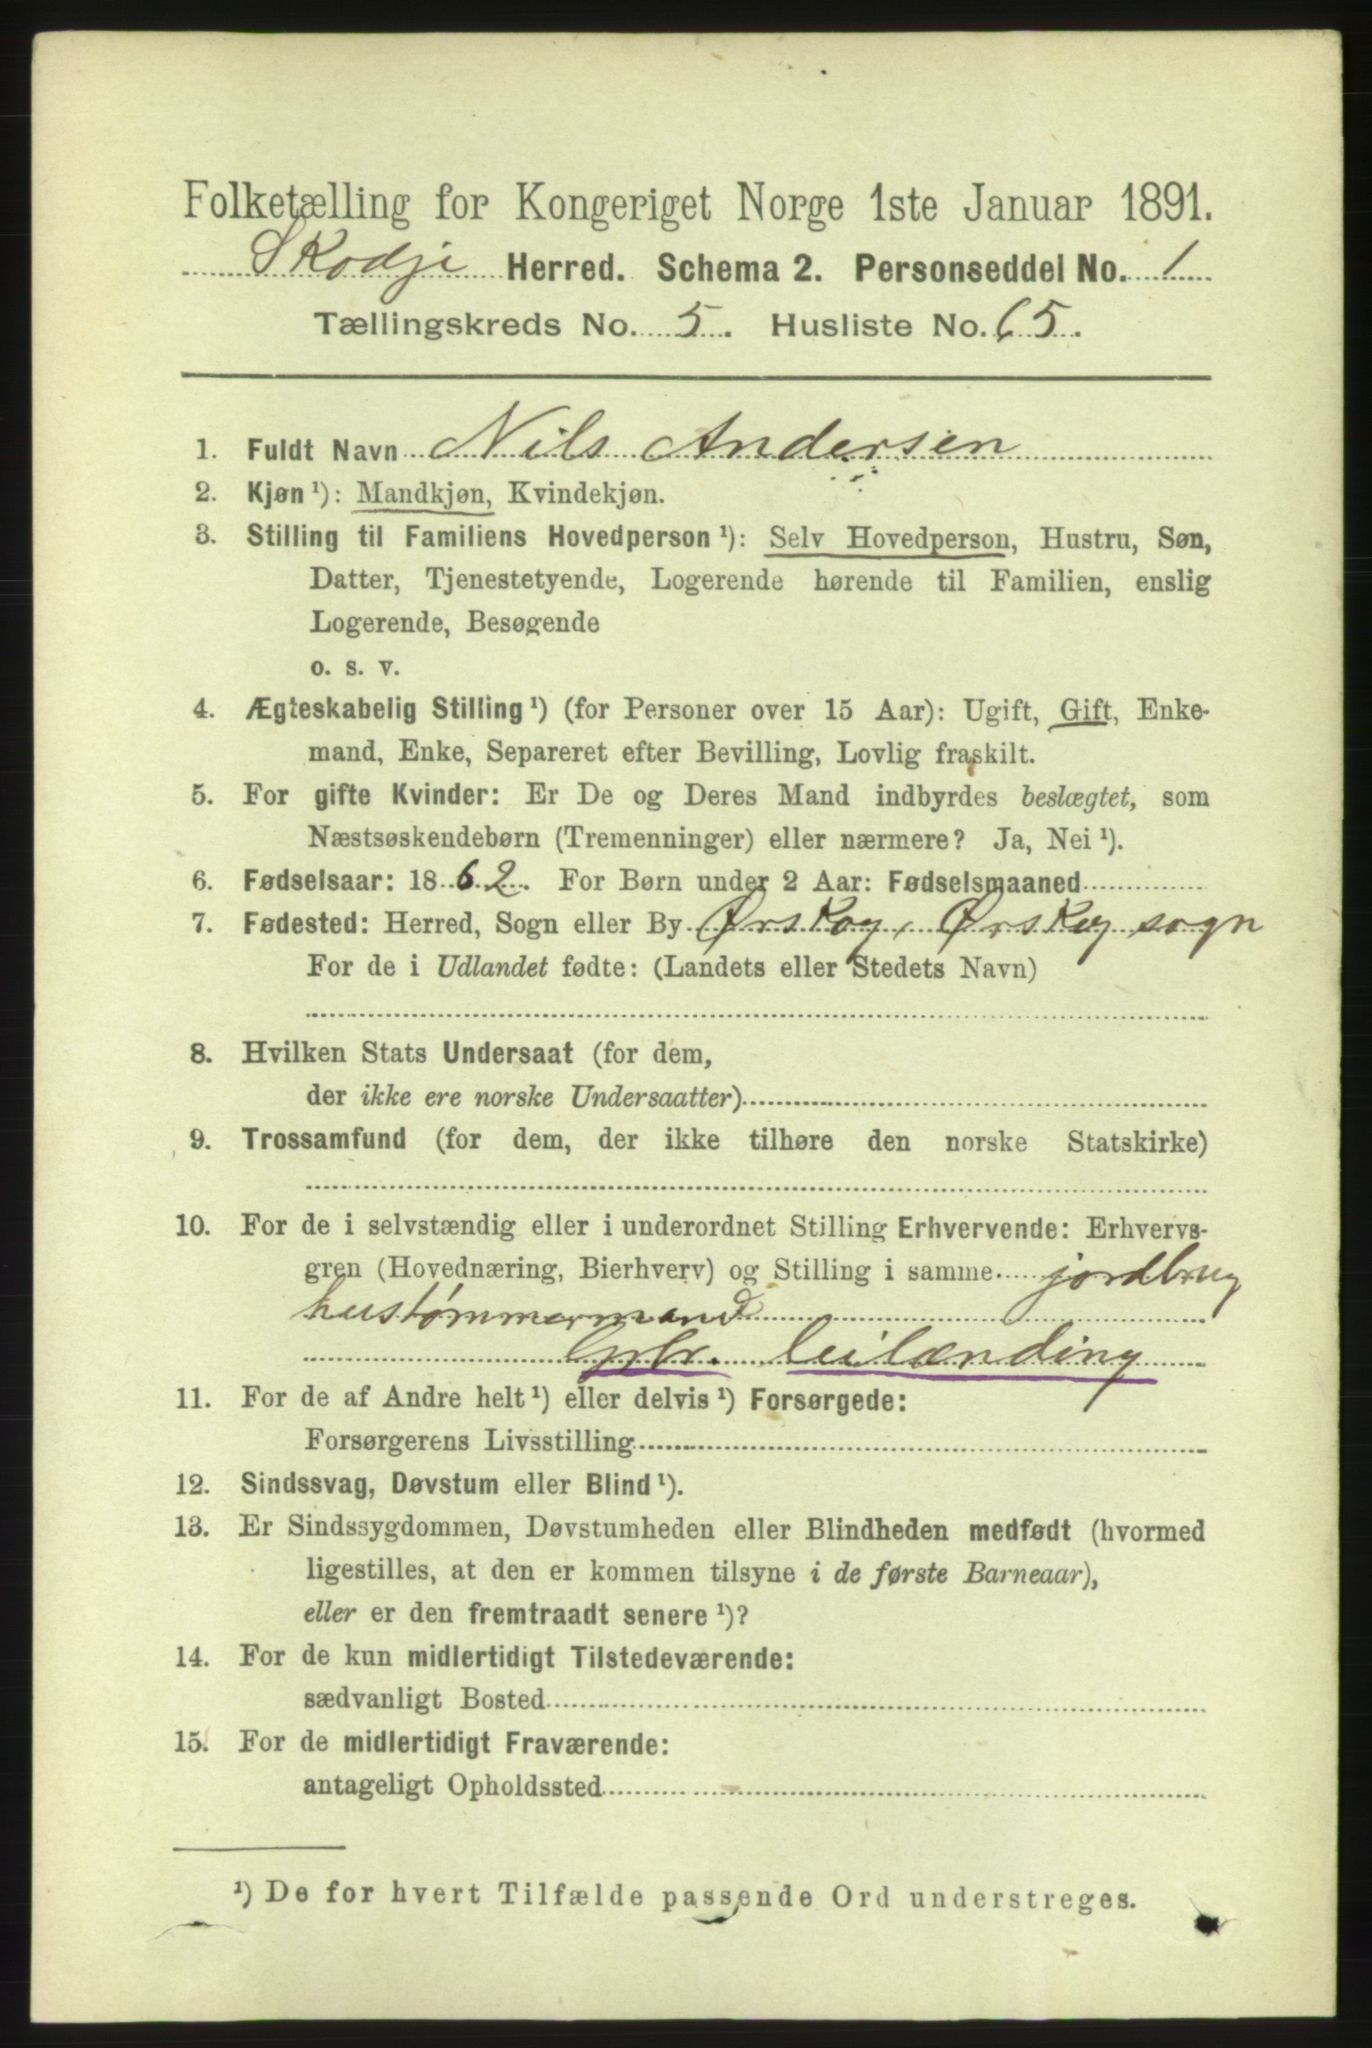 Folketælling for Kongeriget Norge 1ste Januar 1891.
Skodje Herred. Schema 2. Personseddel No. 1
Tællingskreds No. 5. Husliste No. 65.
1. Fuldt Navn Nils Andersen
2. Kjøn ¹): Mandkjøn, Kvindekjøn.
3. Stilling til Familiens Hovedperson ¹): Selv Hovedperson, Hustru, Søn,
Datter, Tjenestetyende, Logerende hørende til Familien, enslig
Logerende, Besøgende
o. s. v.
4. Ægteskabelig Stilling ¹) (for Personer over 15 Aar): Ugift, Gift, Enke-
mand, Enke, Separeret efter Bevilling, Lovlig fraskilt.
5. For gifte Kvinder: Er De og Deres Mand indbyrdes beslægtet, som
Næstsøskendebørn (Tremenninger) eller nærmere? Ja, Nei ¹).
6. Fødselsaar: 1862. For Børn under 2 Aar: Fødselsmaaned
7. Fødested: Herred, Sogn eller By Ørskog, Ørskog sogn
For de i Udlandet fødte: (Landets eller Stedets Navn)
8. Hvilken Stats Undersaat (for dem,
der ikke ere norske Undersaatter)
9. Trossamfund (for dem, der ikke tilhøre den norske Statskirke)
10. For de i selvstændig eller i underordnet Stilling Erhvervende: Erhvervs-
gren (Hovednæring, Bierhverv) og Stilling i samme jordbrug
hustømmermand
Gbr. leilænding
11. For de af Andre helt ¹) eller delvis ¹) Forsørgede:
Forsørgerens Livsstilling
12. Sindssvag, Døvstum eller Blind ¹).
13. Er Sindssygdommen, Døvstumheden eller Blindheden medfødt (hvormed
ligestilles, at den er kommen tilsyne i de første Barneaar),
eller er den fremtraadt senere ¹)?
14. For de kun midlertidigt Tilstedeværende:
sædvanligt Bosted
15. For de midlertidigt Fraværende:
antageligt Opholdssted
¹) De for hvert Tilfælde passende Ord understreges.